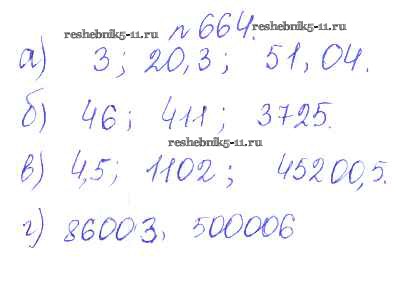 reshebnik5-11.ru
n 664.
reshebnik5-11.ru
а) 3; 20,3; 51,04.
б) 46; 411; 3725.
reshebnik5-11.ru
в) 4,5; 1102; 45200,5.
г) 86003, 500006